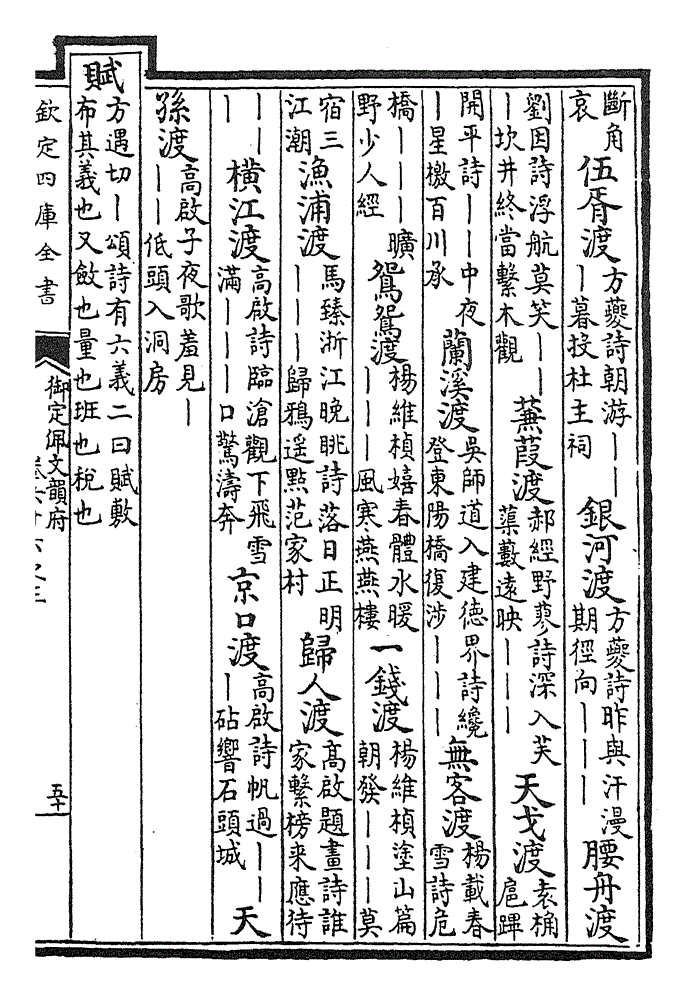 斷角哀 伍胥渡 方夔詩朝游———暮投杜主祠 銀河渡 方夔詩昨與汗漫期徑向——— 腰舟渡
劉因詩浮航莫笑———坎井終當繫木觀 蒹葭渡 郝經野蓼詩深入芙蕖藪遠映——— 天戈渡 袁桷扈蹕
開平詩——中夜—星檄百川承 蘭溪渡 吳師道入建德界詩纔登東陽橋復涉——— 無客渡 楊載春雪詩危
橋———曠野少人經 鴛鴦渡 楊維楨嬉春體水暖———風寒燕燕樓 一錢渡 楊維楨塗山篇朝發———莫
宿三江潮 漁浦渡 馬臻浙江晚眺詩落日正明———歸鴉遥點范家村 歸人渡 高啟題畫詩誰家繫榜來應待
——— 橫江渡 高啟詩臨滄觀下飛雪滿———口驚濤奔 京口渡 高啟詩帆過———砧響石頭城 天
孫渡 高啟子夜歌羞見———低頭入洞房
賦 方遇切—頌詩有六義二曰賦敷布其義也又斂也量也班也稅也
欽定四庫全書
御定佩文韻府
五十一